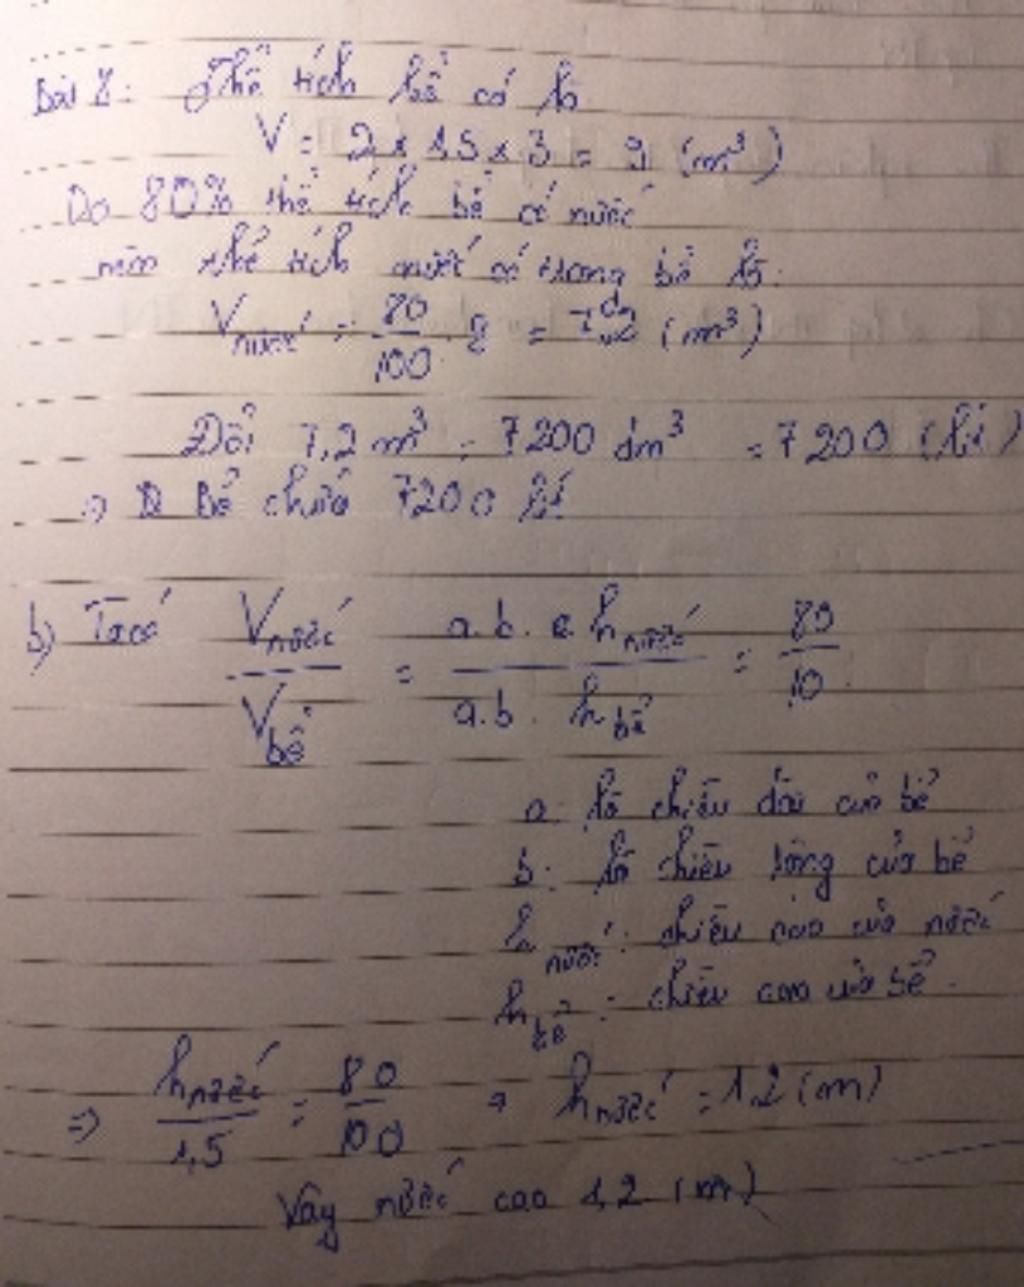 Bài 8: Thể tích bể có là
V = 2 x 1,5 x 3 = 9 (m³)
Do 80% thể tích bể có nước
nên thể tích nước có trong bể là:
V nước = 80/100 . 9 = 7,2 (m³)
Đổi 7,2 m³ = 7200 dm³ = 7200 (lít)
=> Bể chứa 7200 lít
b) Ta có V nước / V bể = a.b. h nước / a.b. h bể = 80/10
a: là chiều dài của bể
b: là chiều rộng của bể
h nước: chiều cao của nước
h bể: chiều cao của bể.
=> h nước / 1,5 = 80/100 => h nước = 1,2 (m)
Vậy nước cao 1,2 (m)